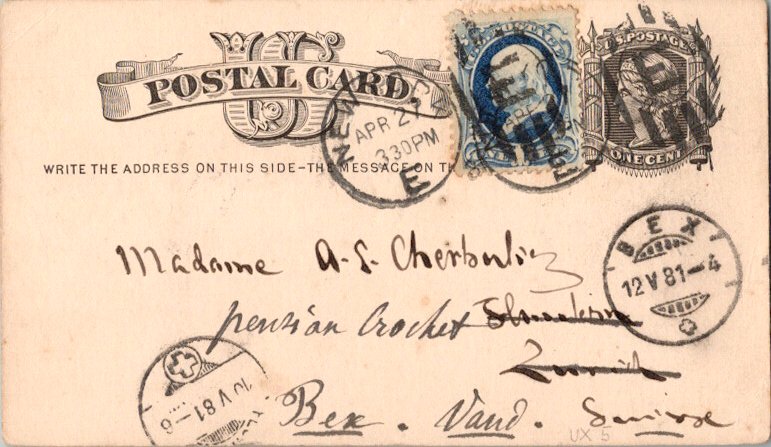 U S
POSTAL CARD
NEW
APR 27
3 30 PM
E
U.S. POSTAGE
ONE CENT
WRITE THE ADDRESS ON THIS SIDE–THE MESSAGE ON TH
Madame A. S. Cherbuliez
pension Crochet
Zurich
Bex. Vaud. Suisse
BEX
12 V 81–4
V 81–8
UX 5